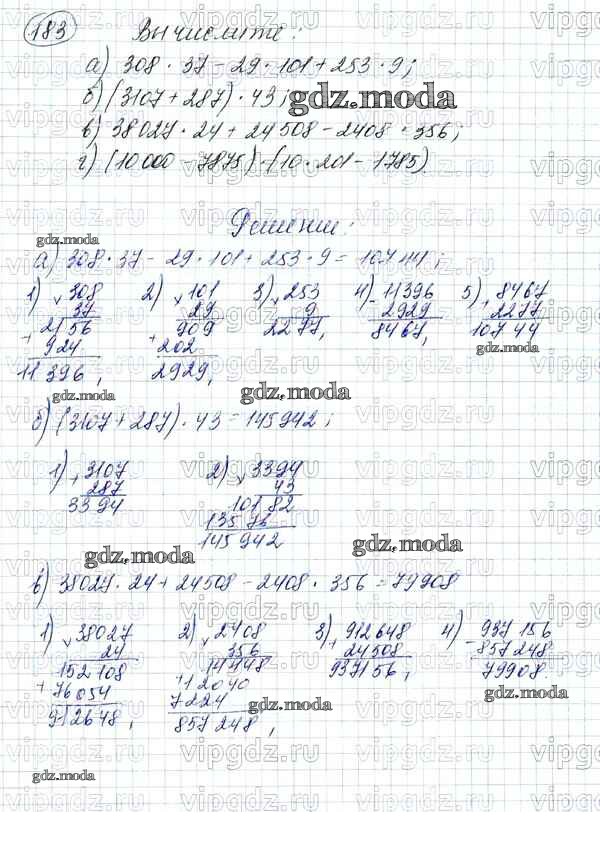 183 Вычислите:
а) 308 · 37 - 29 · 101 + 253 · 9;
б) (3107 + 287) · 43;
gdz.moda
в) 38027 · 24 + 24508 - 2408 · 356;
г) (10 000 - 7875) · (10 · 201 - 1785).
Решение:
gdz.moda
а) 308 · 37 - 29 · 101 + 253 · 9 = 10744;
1) × 308 2) × 101 3) × 253 4) - 11396 5) + 8467
37 29 9 2929 2277
+ 2156 909 2277, 8467, 10744
924 + 202 gdz.moda
11 396, 2929,
gdz.moda gdz.moda
б) (3107 + 287) · 43 = 145942;
1) + 3107 2) × 3394
287 43
3394 10182
13576
145942
gdz.moda gdz.moda
в) 38027 · 24 + 24508 - 2408 · 356 = 79908
1) × 38027 2) × 2408 3) + 912648 4) - 937 156
24 356 24508 857 248
152108 14448 937156, 79908
+ 76054 + 12040 gdz.moda
912648, 7224 gdz.moda
857 248,
gdz.moda
vipgdz.ru